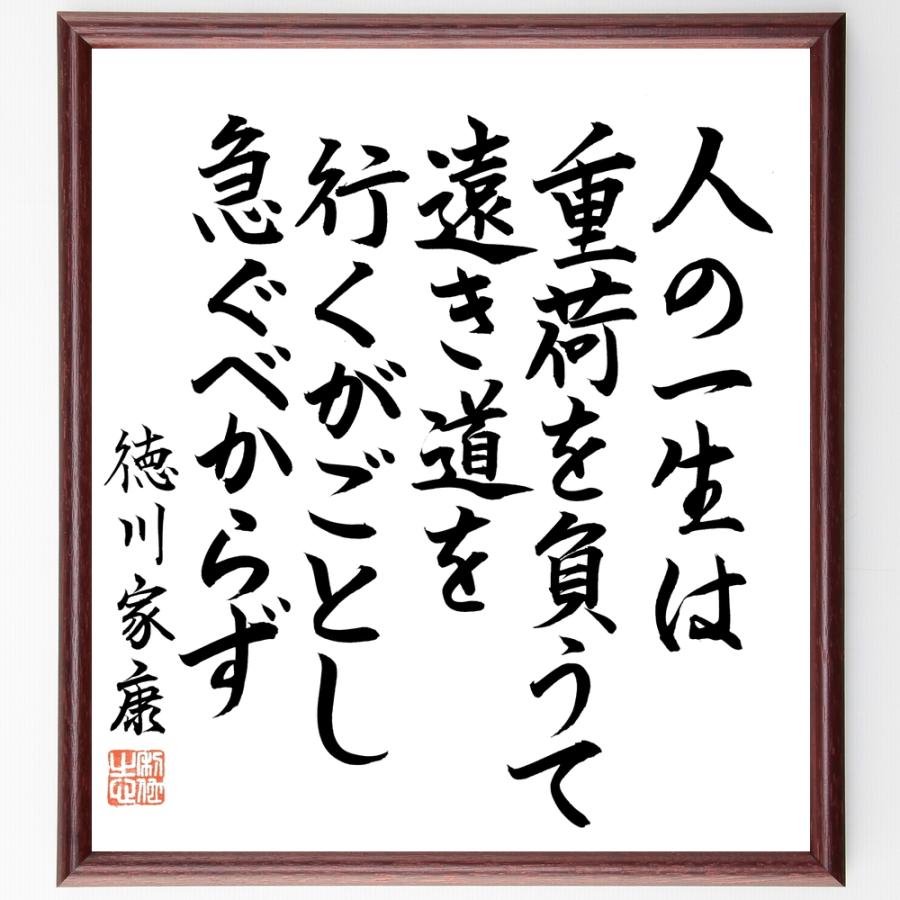 人の一生は
重荷を負うて
遠き道を
行くがごとし
急ぐべからず
徳川家康